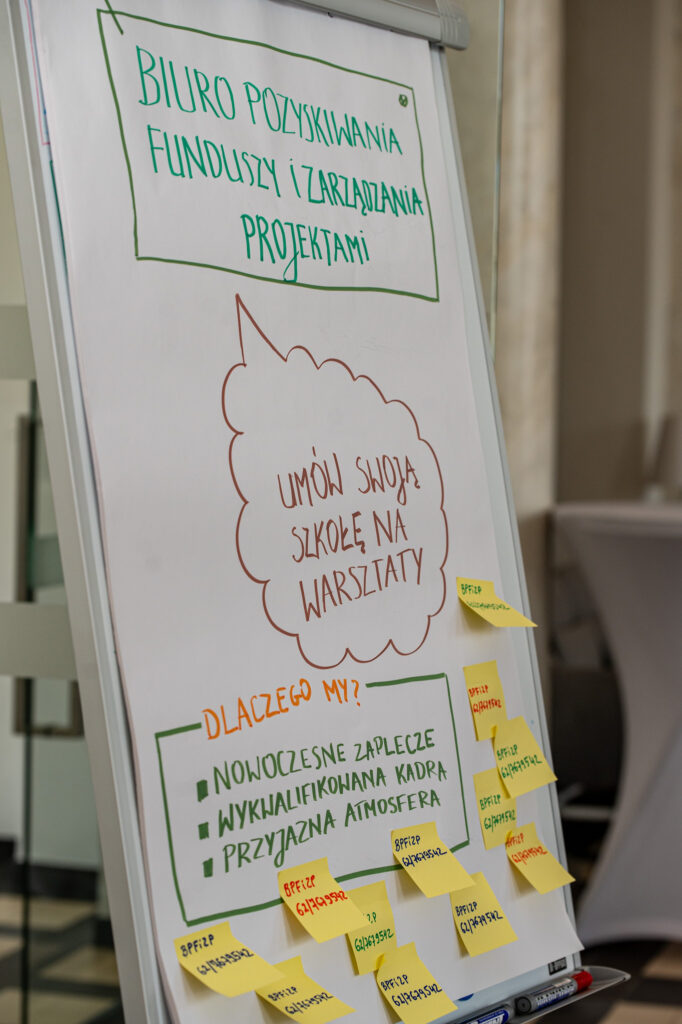 BIURO POZYSKIWANIA
FUNDUSZY I ZARZĄDZANIA
PROJEKTAMI
UMÓW SWOJĄ
SZKOŁĘ NA
WARSZTATY
DLACZEGO MY?
NOWOCZESNE ZAPLECZE
WYKWALIFIKOWANA KADRA
PRZYJAZNA ATMOSFERA
BPFiZP
BPFiZP
62/7679542
BPFiZP
62/7679542
BPFiZP
62/7679542
BPFiZP
62/7679542
BPFiZP
62/7679542
BPFiZP
62/7679542
BPFiZP
62/7679542
BPFiZP
62/7679542
BPFiZP
62/7679542
BPFiZP
62/7679542
BPFiZP
62/7679542